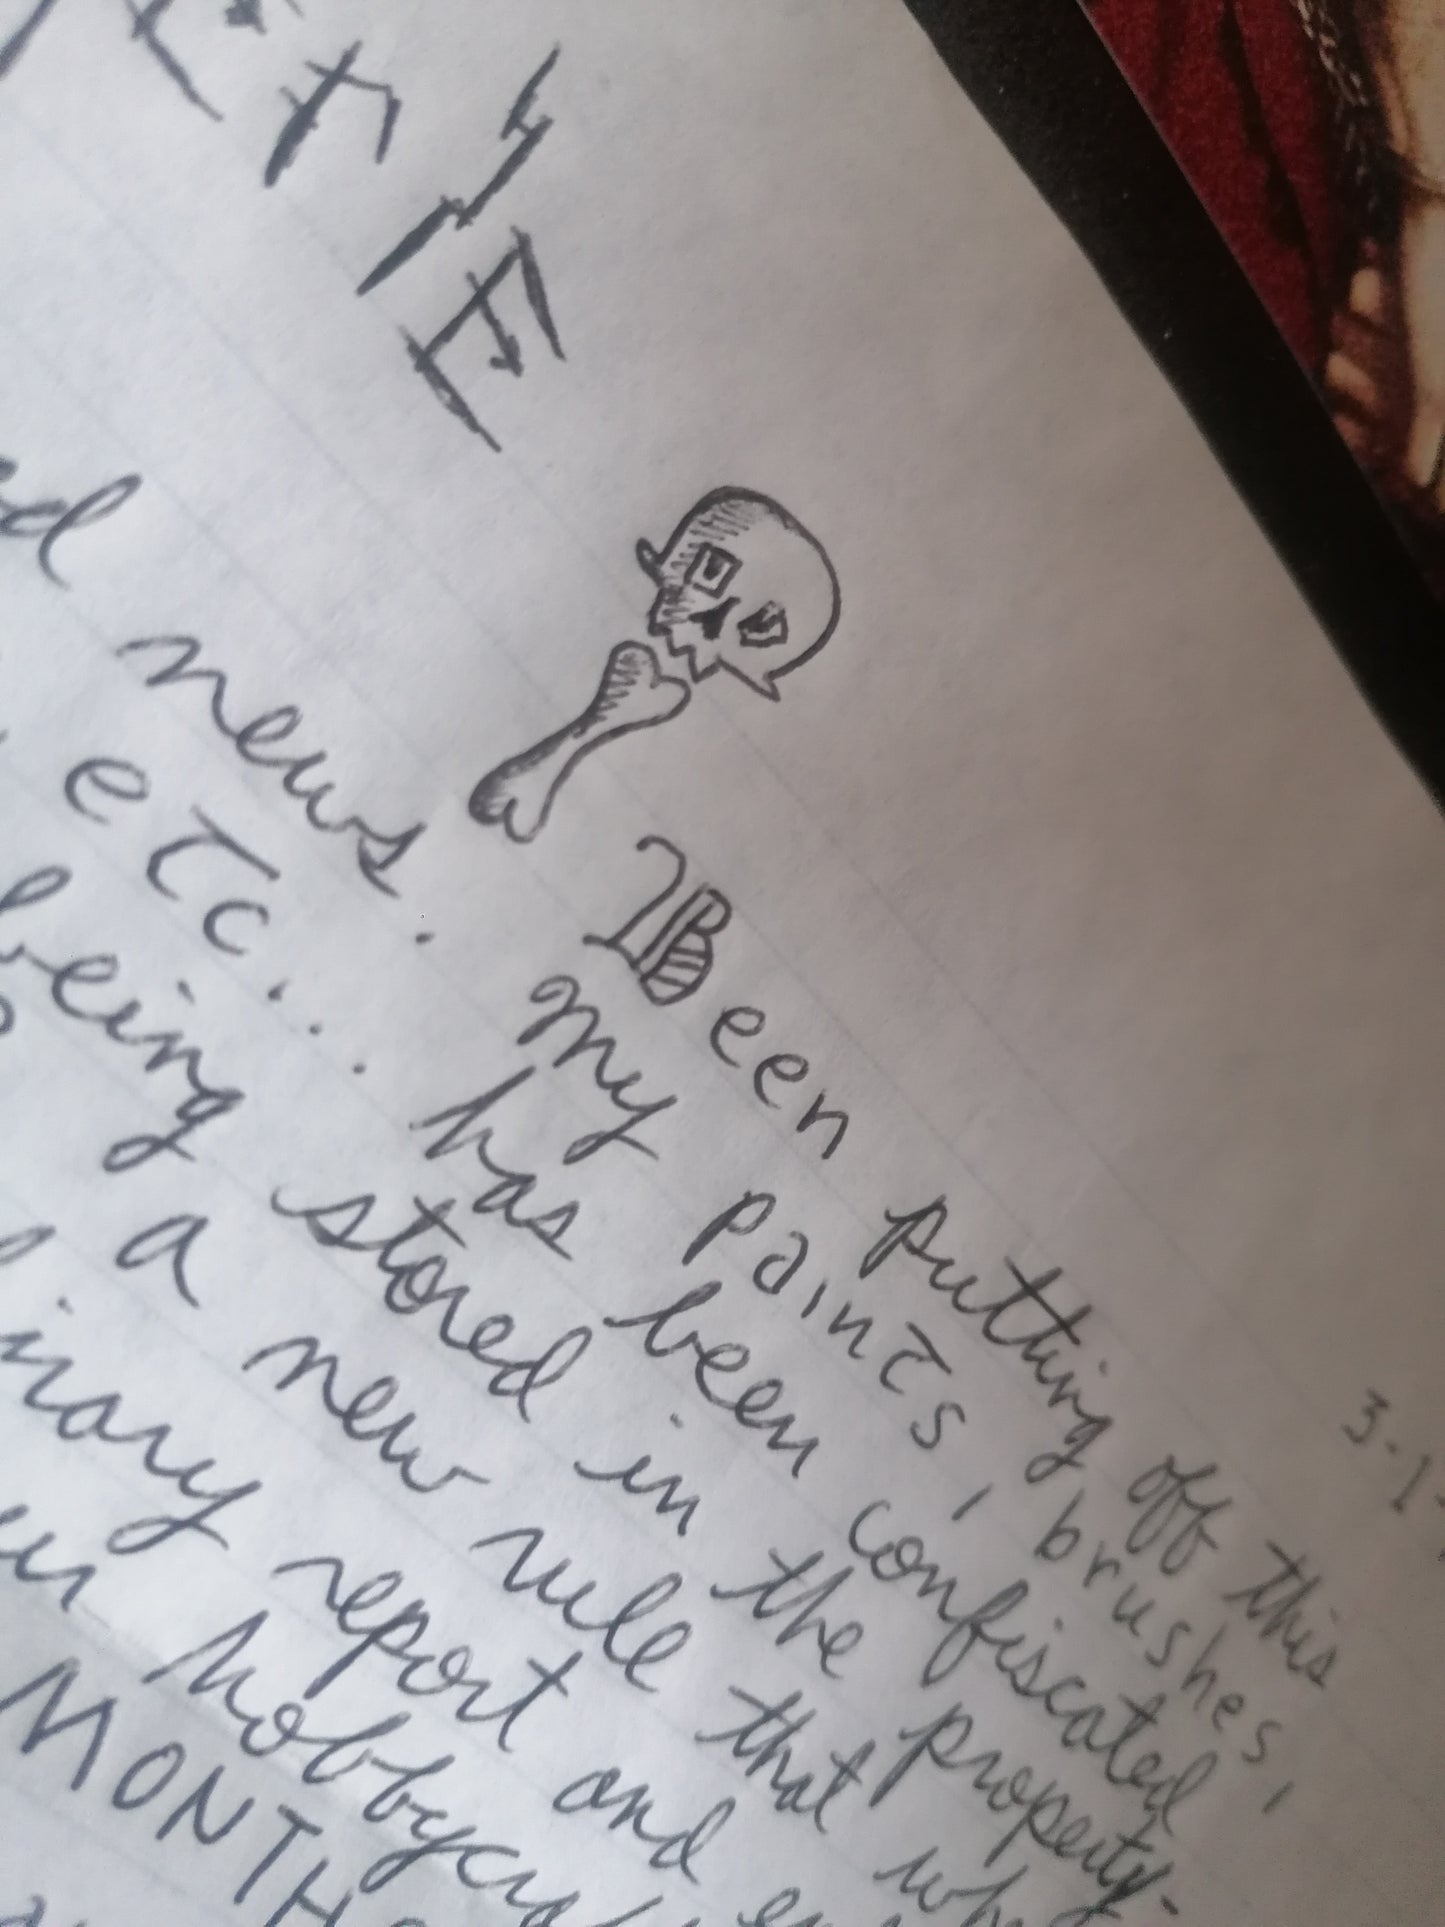 3-1-
Been putting off this
news. my paints, brushes,
etc... has been confiscated
being stored in the property-
a new rule that
report and
MONTH